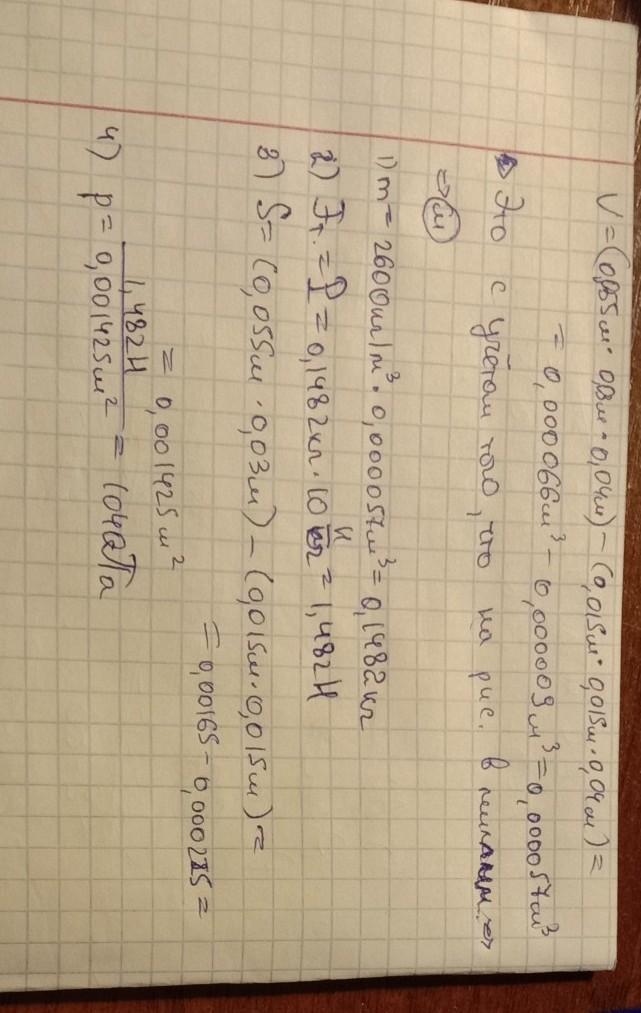 V = (0,055м · 0,03м · 0,04м) – (0,015м · 0,015м · 0,04м) =
= 0,000066м³ – 0,000009м³ = 0,000057м³
Это с учётом того, что на рис. в
=> м
1) m = 2600кг/м³ · 0,000057м³ = 0,1482кг
2) Fт. = P = 0,1482кг · 10 Н/кг = 1,482Н
3) S = (0,055м · 0,03м) – (0,015м · 0,015м) =
= 0,00165 – 0,000225 =
= 0,001425м²
4) p = 1,482Н / 0,001425м² = 1040Па